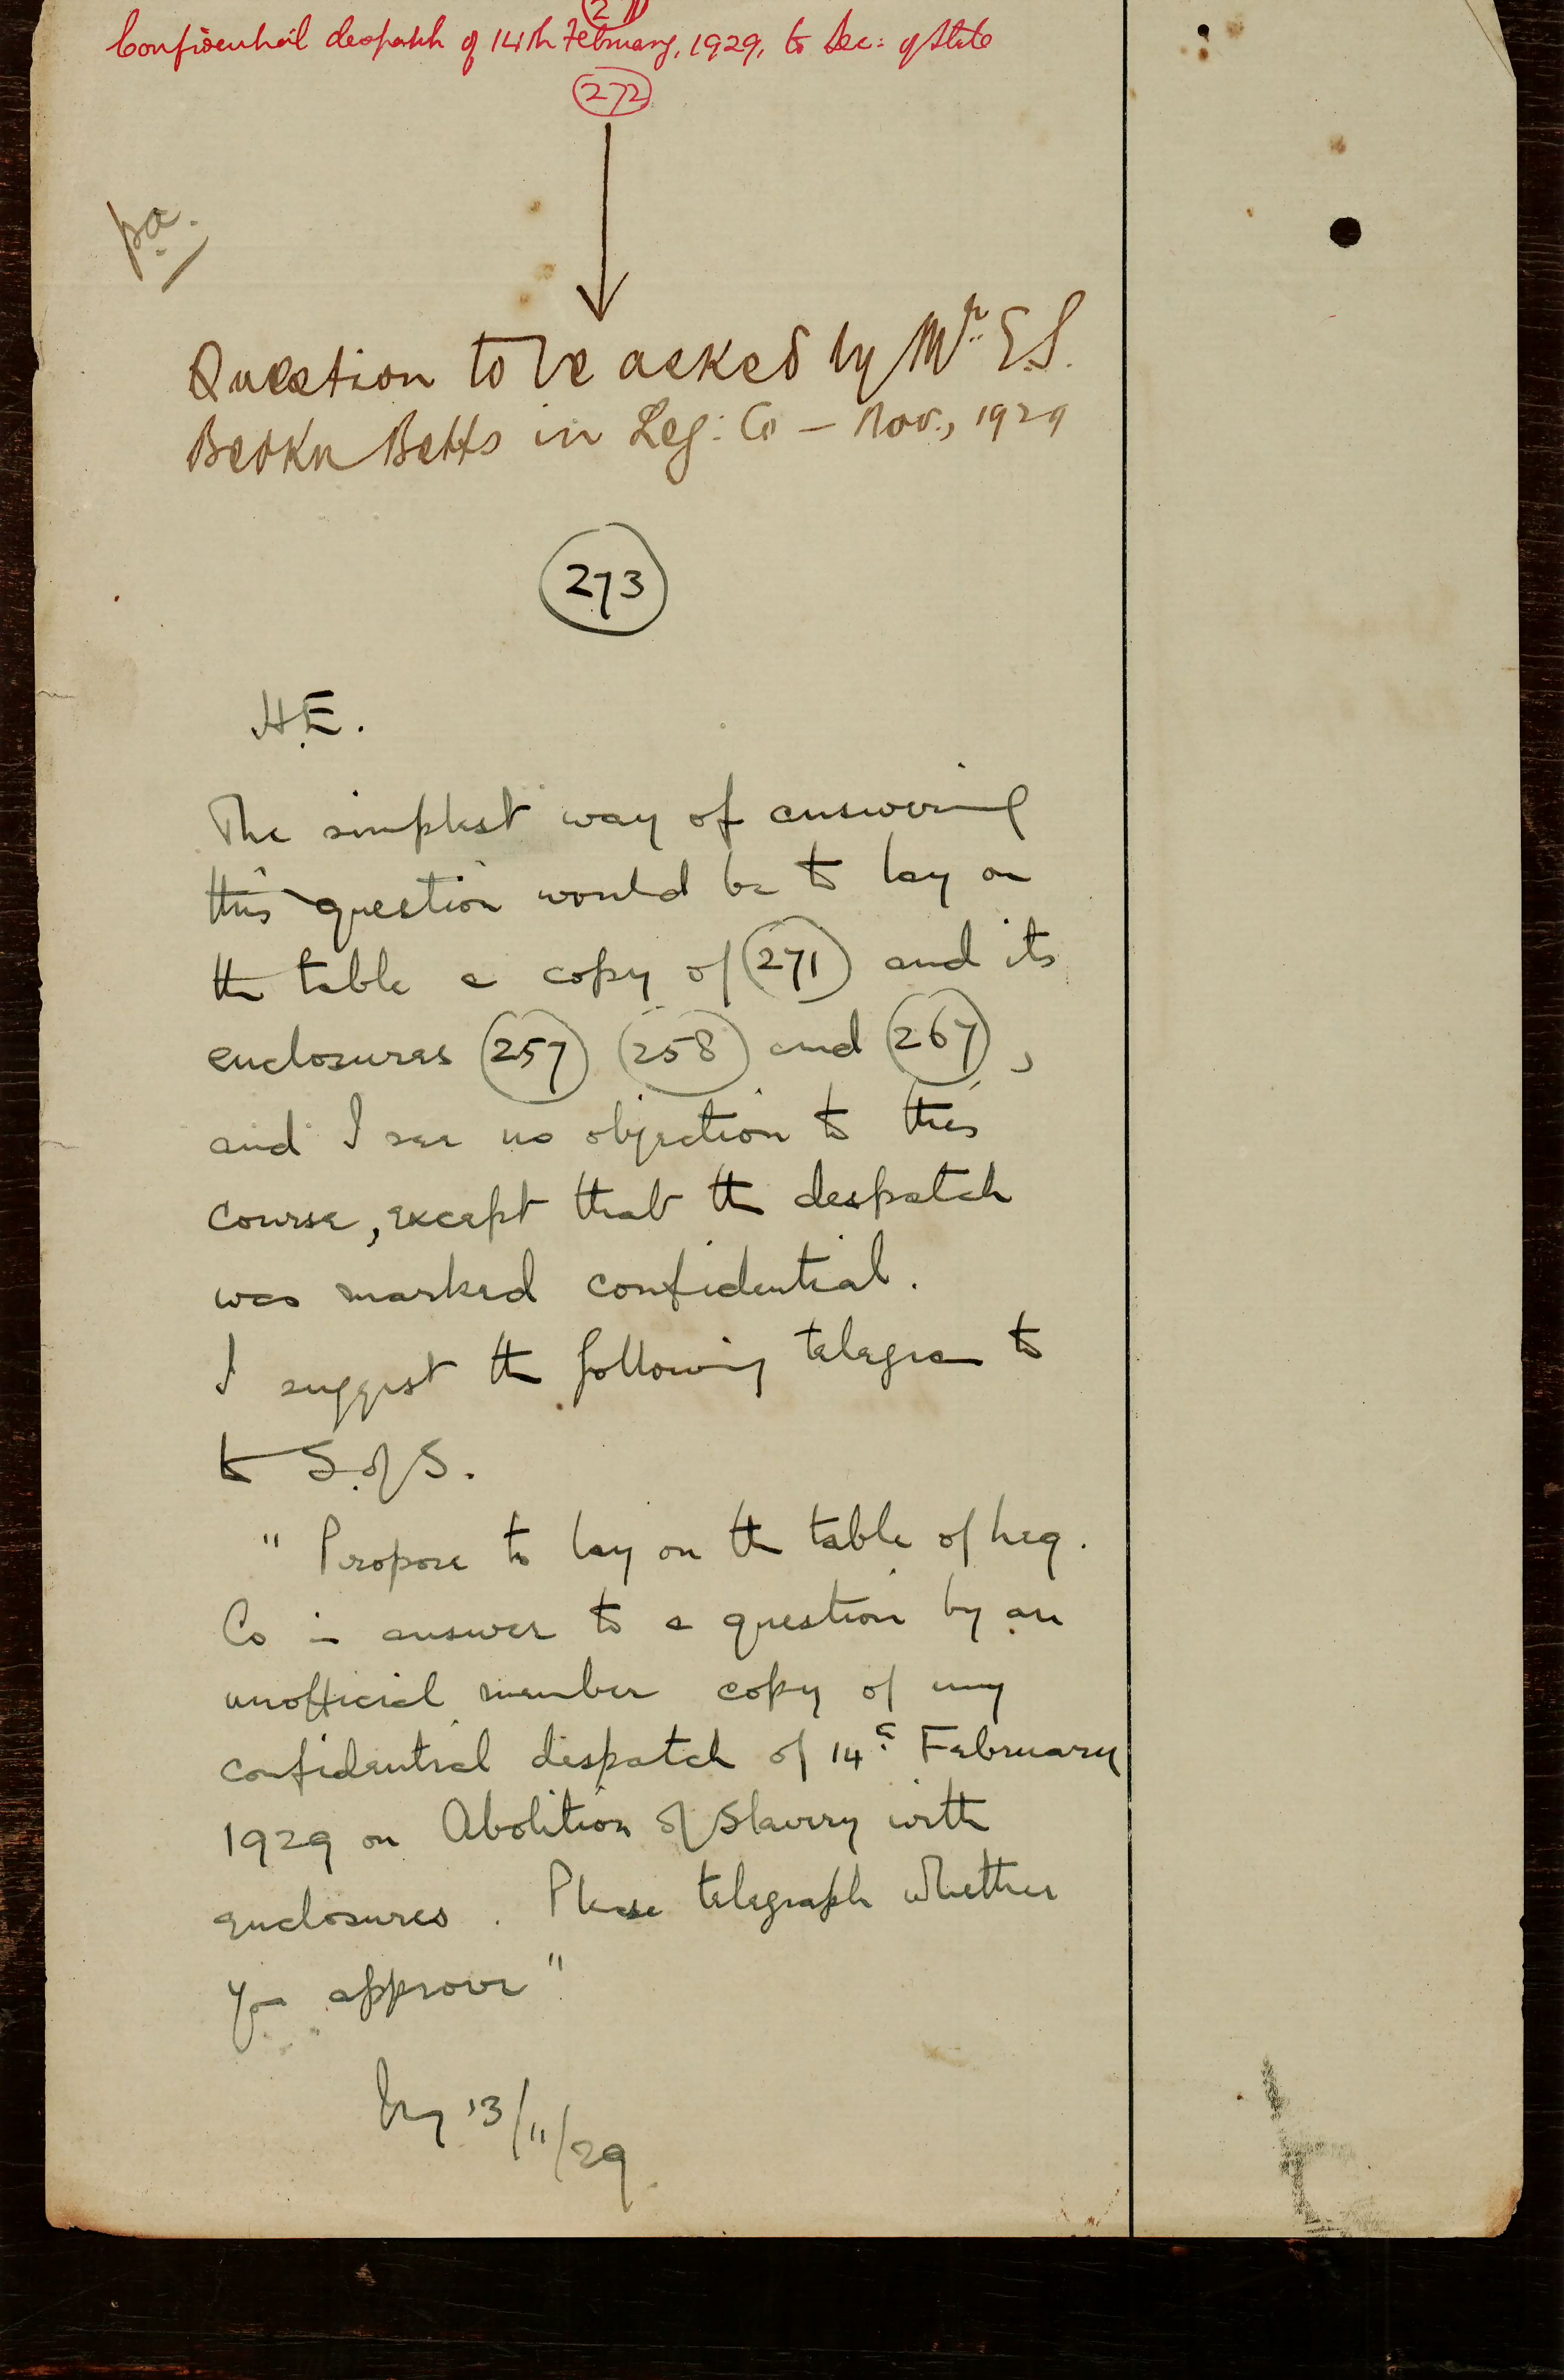 271
Confidential despatch of 14th February, 1929, to Sec: of State
272
pa.
Question to be asked by Mr. E.S.
Beoku Betts in Leg: Co – Nov., 1929
273
H.E.
The simplest way of answering
this question would be to lay on
the table a copy of 271 and its
enclosures 257 258 and 267,
and I see no objection to this
course, except that the despatch
was marked confidential.
I suggest the following telegram to
to S. of S.
" Propose to lay on the table of Leg.
Co in answer to a question by an
unofficial member copy of my
confidential despatch of 14th February
1929 on Abolition of Slavery with
enclosures. Please telegraph whether
you approve"
13/11/29